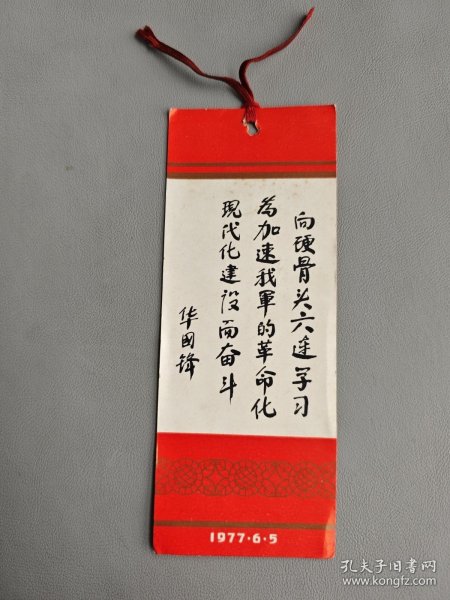 向硬骨头六连学习
为加速我軍的革命化
現代化建設而奋斗
华国锋
1977·6·5
孔夫子旧书网
www.kongfz.com